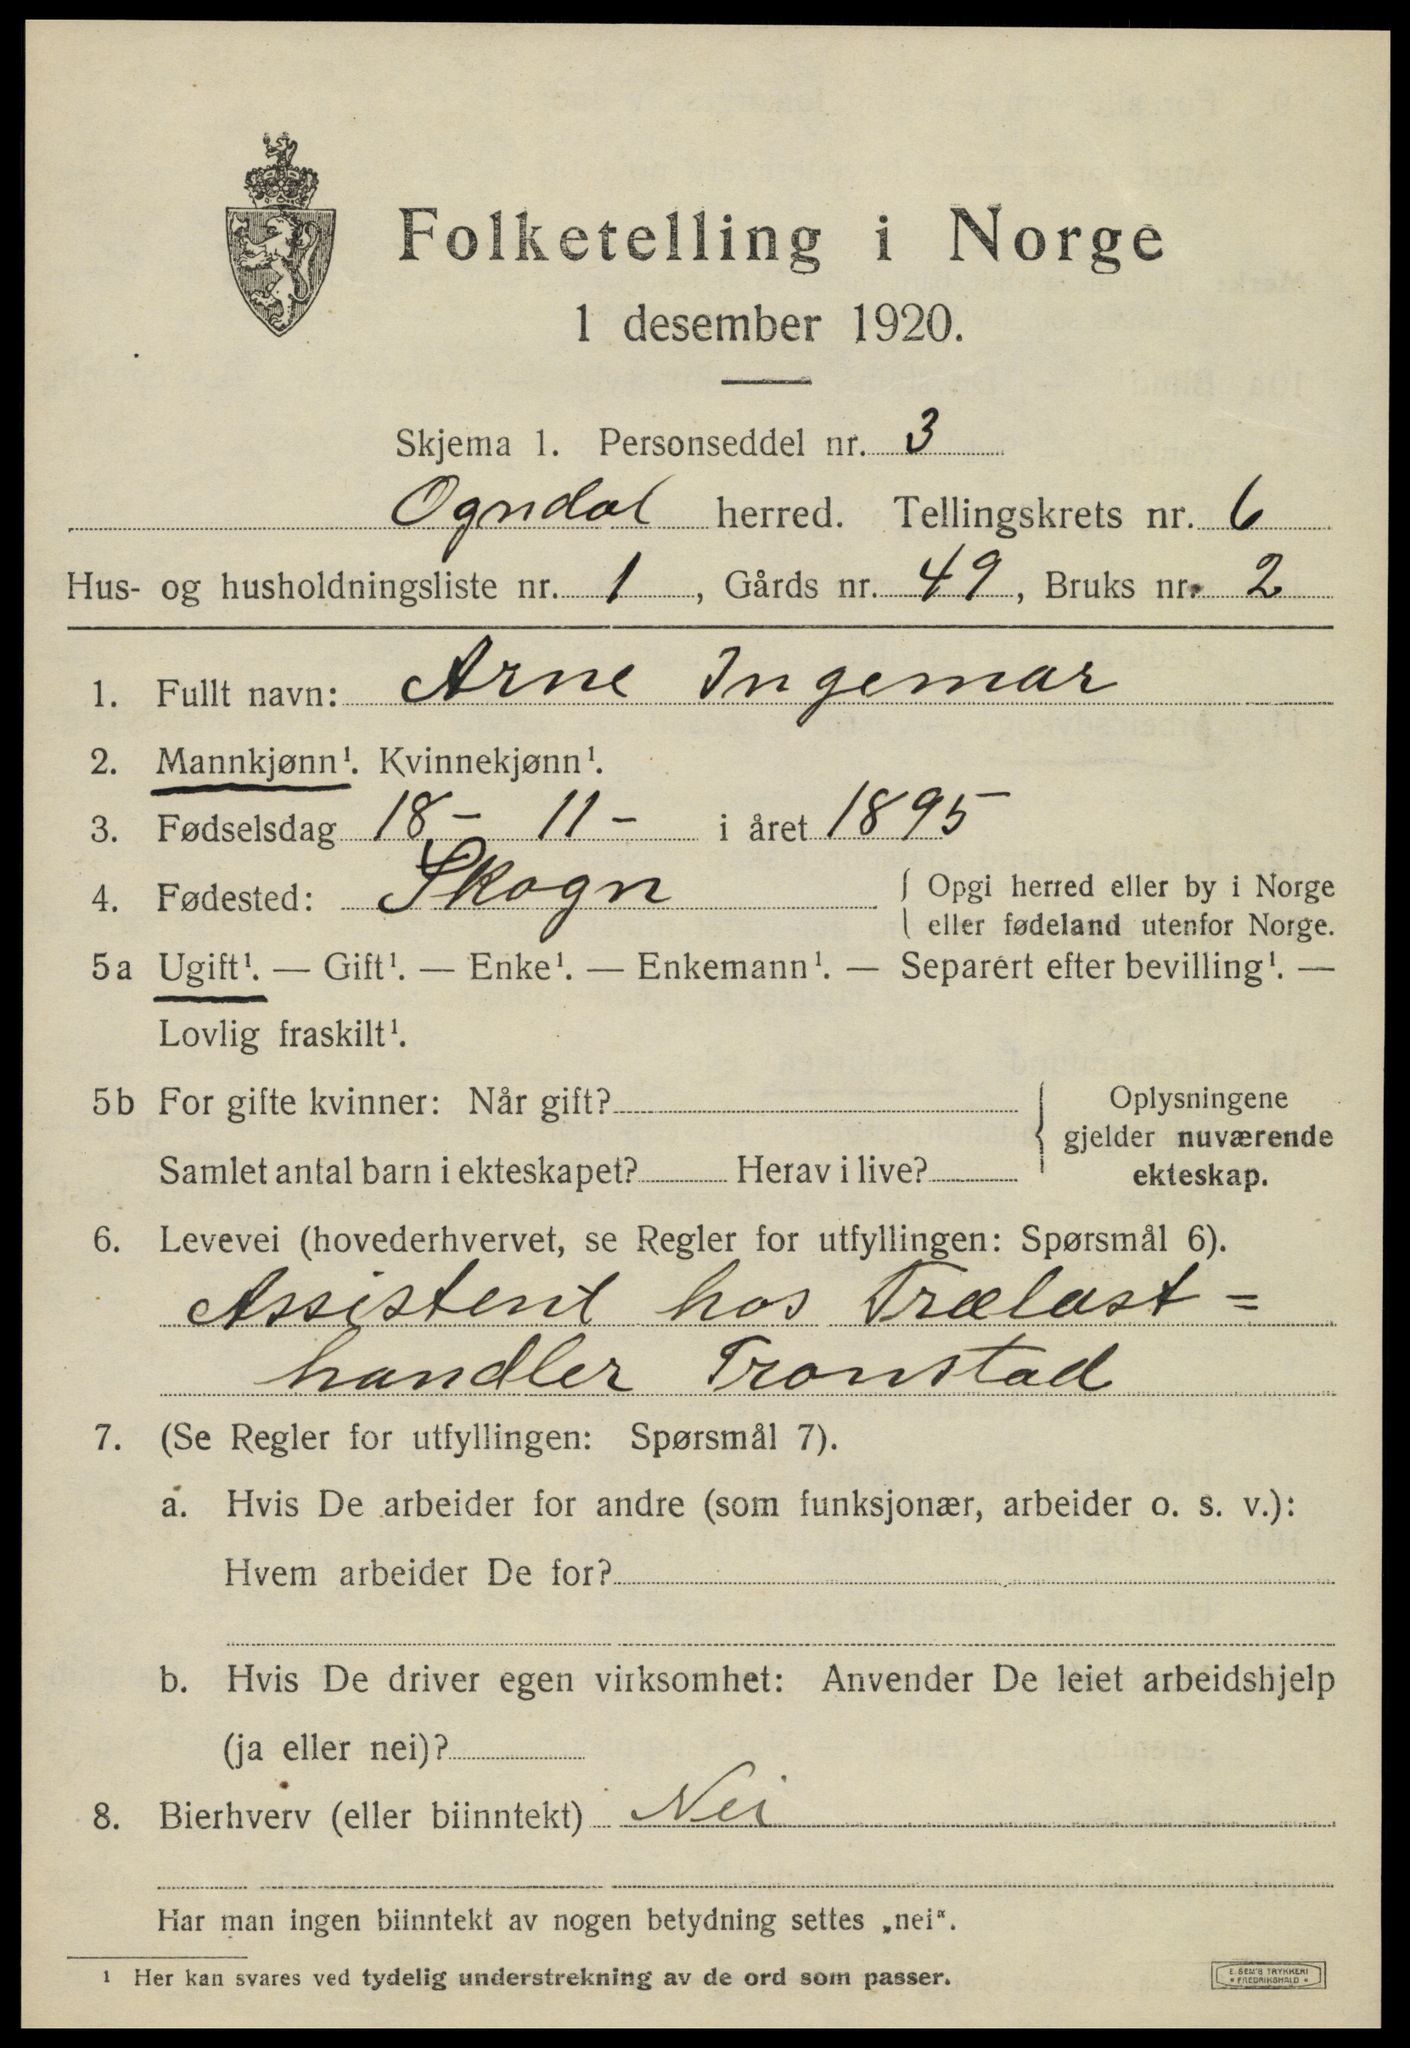 Folketelling i Norge
1 desember 1920.
Skjema 1. Personseddel nr. 3
Ogndal herred. Tellingskrets nr. 6
Hus- og husholdningsliste nr. 1, Gårds nr. 49, Bruks nr. 2
1. Fullt navn: Arne Ingemar
2. Mannkjønn¹. Kvinnekjønn¹.
3. Fødselsdag 18 - 11 - i året 1895
4. Fødested: Skogn { Opgi herred eller by i Norge
eller fødeland utenfor Norge.
5a Ugift¹. — Gift¹. — Enke¹. — Enkemann¹. — Separert efter bevilling¹. —
Lovlig fraskilt¹.
5b For gifte kvinner: Når gift? { Oplysningene
gjelder nuværende
Samlet antal barn i ekteskapet? Herav i live? ekteskap.
6. Levevei (hovederhvervet, se Regler for utfyllingen: Spørsmål 6).
Assistent hos Trælast=
handler Tronstad
7. (Se Regler for utfyllingen: Spørsmål 7).
a. Hvis De arbeider for andre (som funksjonær, arbeider o. s. v.):
Hvem arbeider De for?
b. Hvis De driver egen virksomhet: Anvender De leiet arbeidshjelp
(ja eller nei)?
8. Bierhverv (eller biinntekt) Nei
Har man ingen biinntekt av nogen betydning settes „nei“.
¹ Her kan svares ved tydelig understrekning av de ord som passer.
E. SEM'S TRYKKERI
• FREDRIKSHALD •